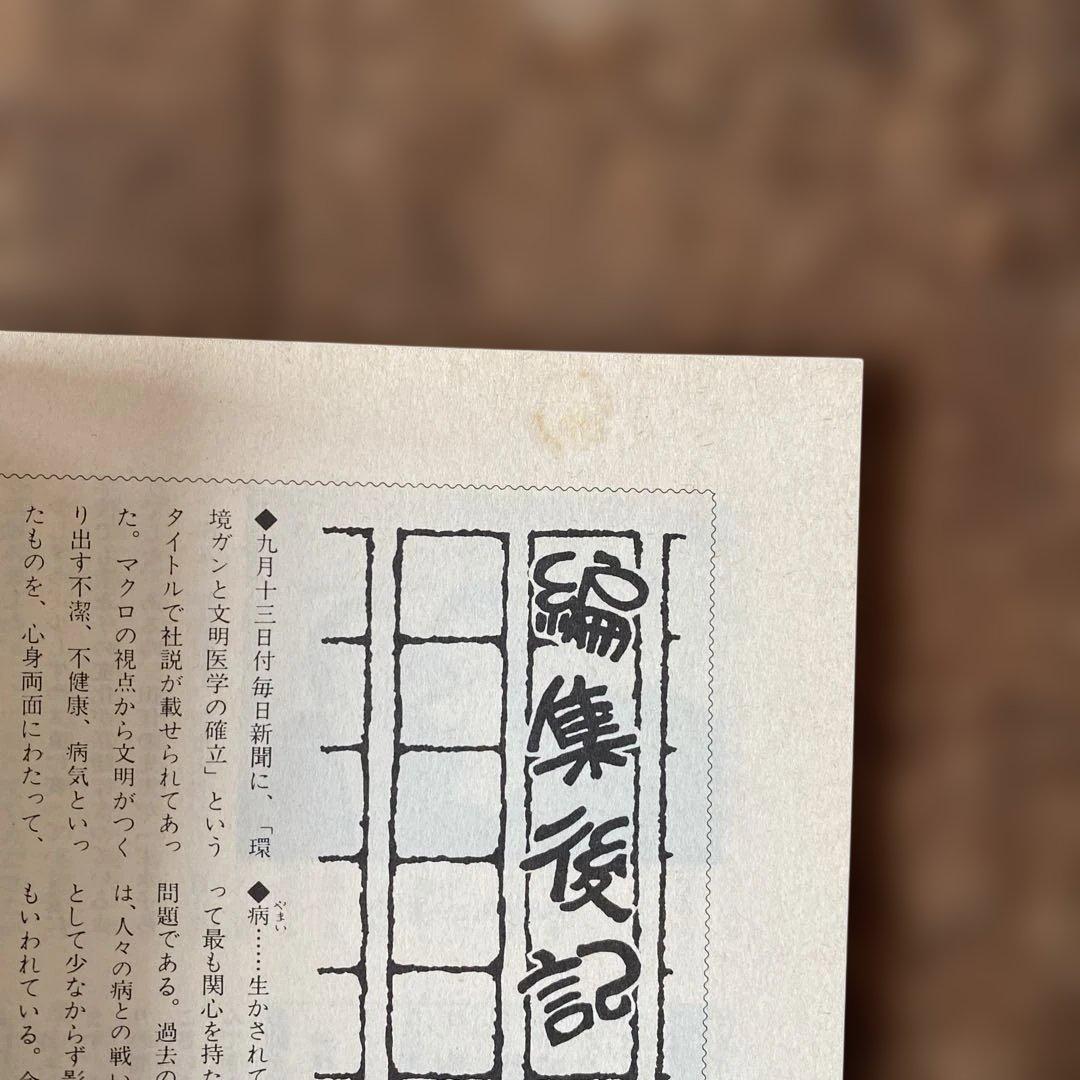 編集後記
◆九月十三日付毎日新聞に、「環
境ガンと文明医学の確立」という
タイトルで社説が載せられてあっ
た。マクロの視点から文明がつく
り出す不潔、不健康、病気といっ
たものを、心身両面にわたって、
◆病……生かされて
やまい
って最も関心を持た
問題である。過去の
は、人々の病との戦い
として少なからず影
もいわれている。